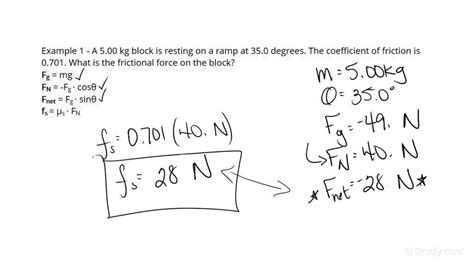 Example 1 - A 5.00 kg block is resting on a ramp at 35.0 degrees. The coefficient of friction is
0.701. What is the frictional force on the block?
Fg = mg ✓
FN = -Fg · cosθ ✓
Fnet = Fg · sinθ ✓
fs = μs · FN
m = 5.00kg
θ = 35.0°
Fg = -49. N
↳ FN = 40. N
* Fnet = -28 N *
fs = 0.701 (40. N)
fs = 28 N
©Study.com